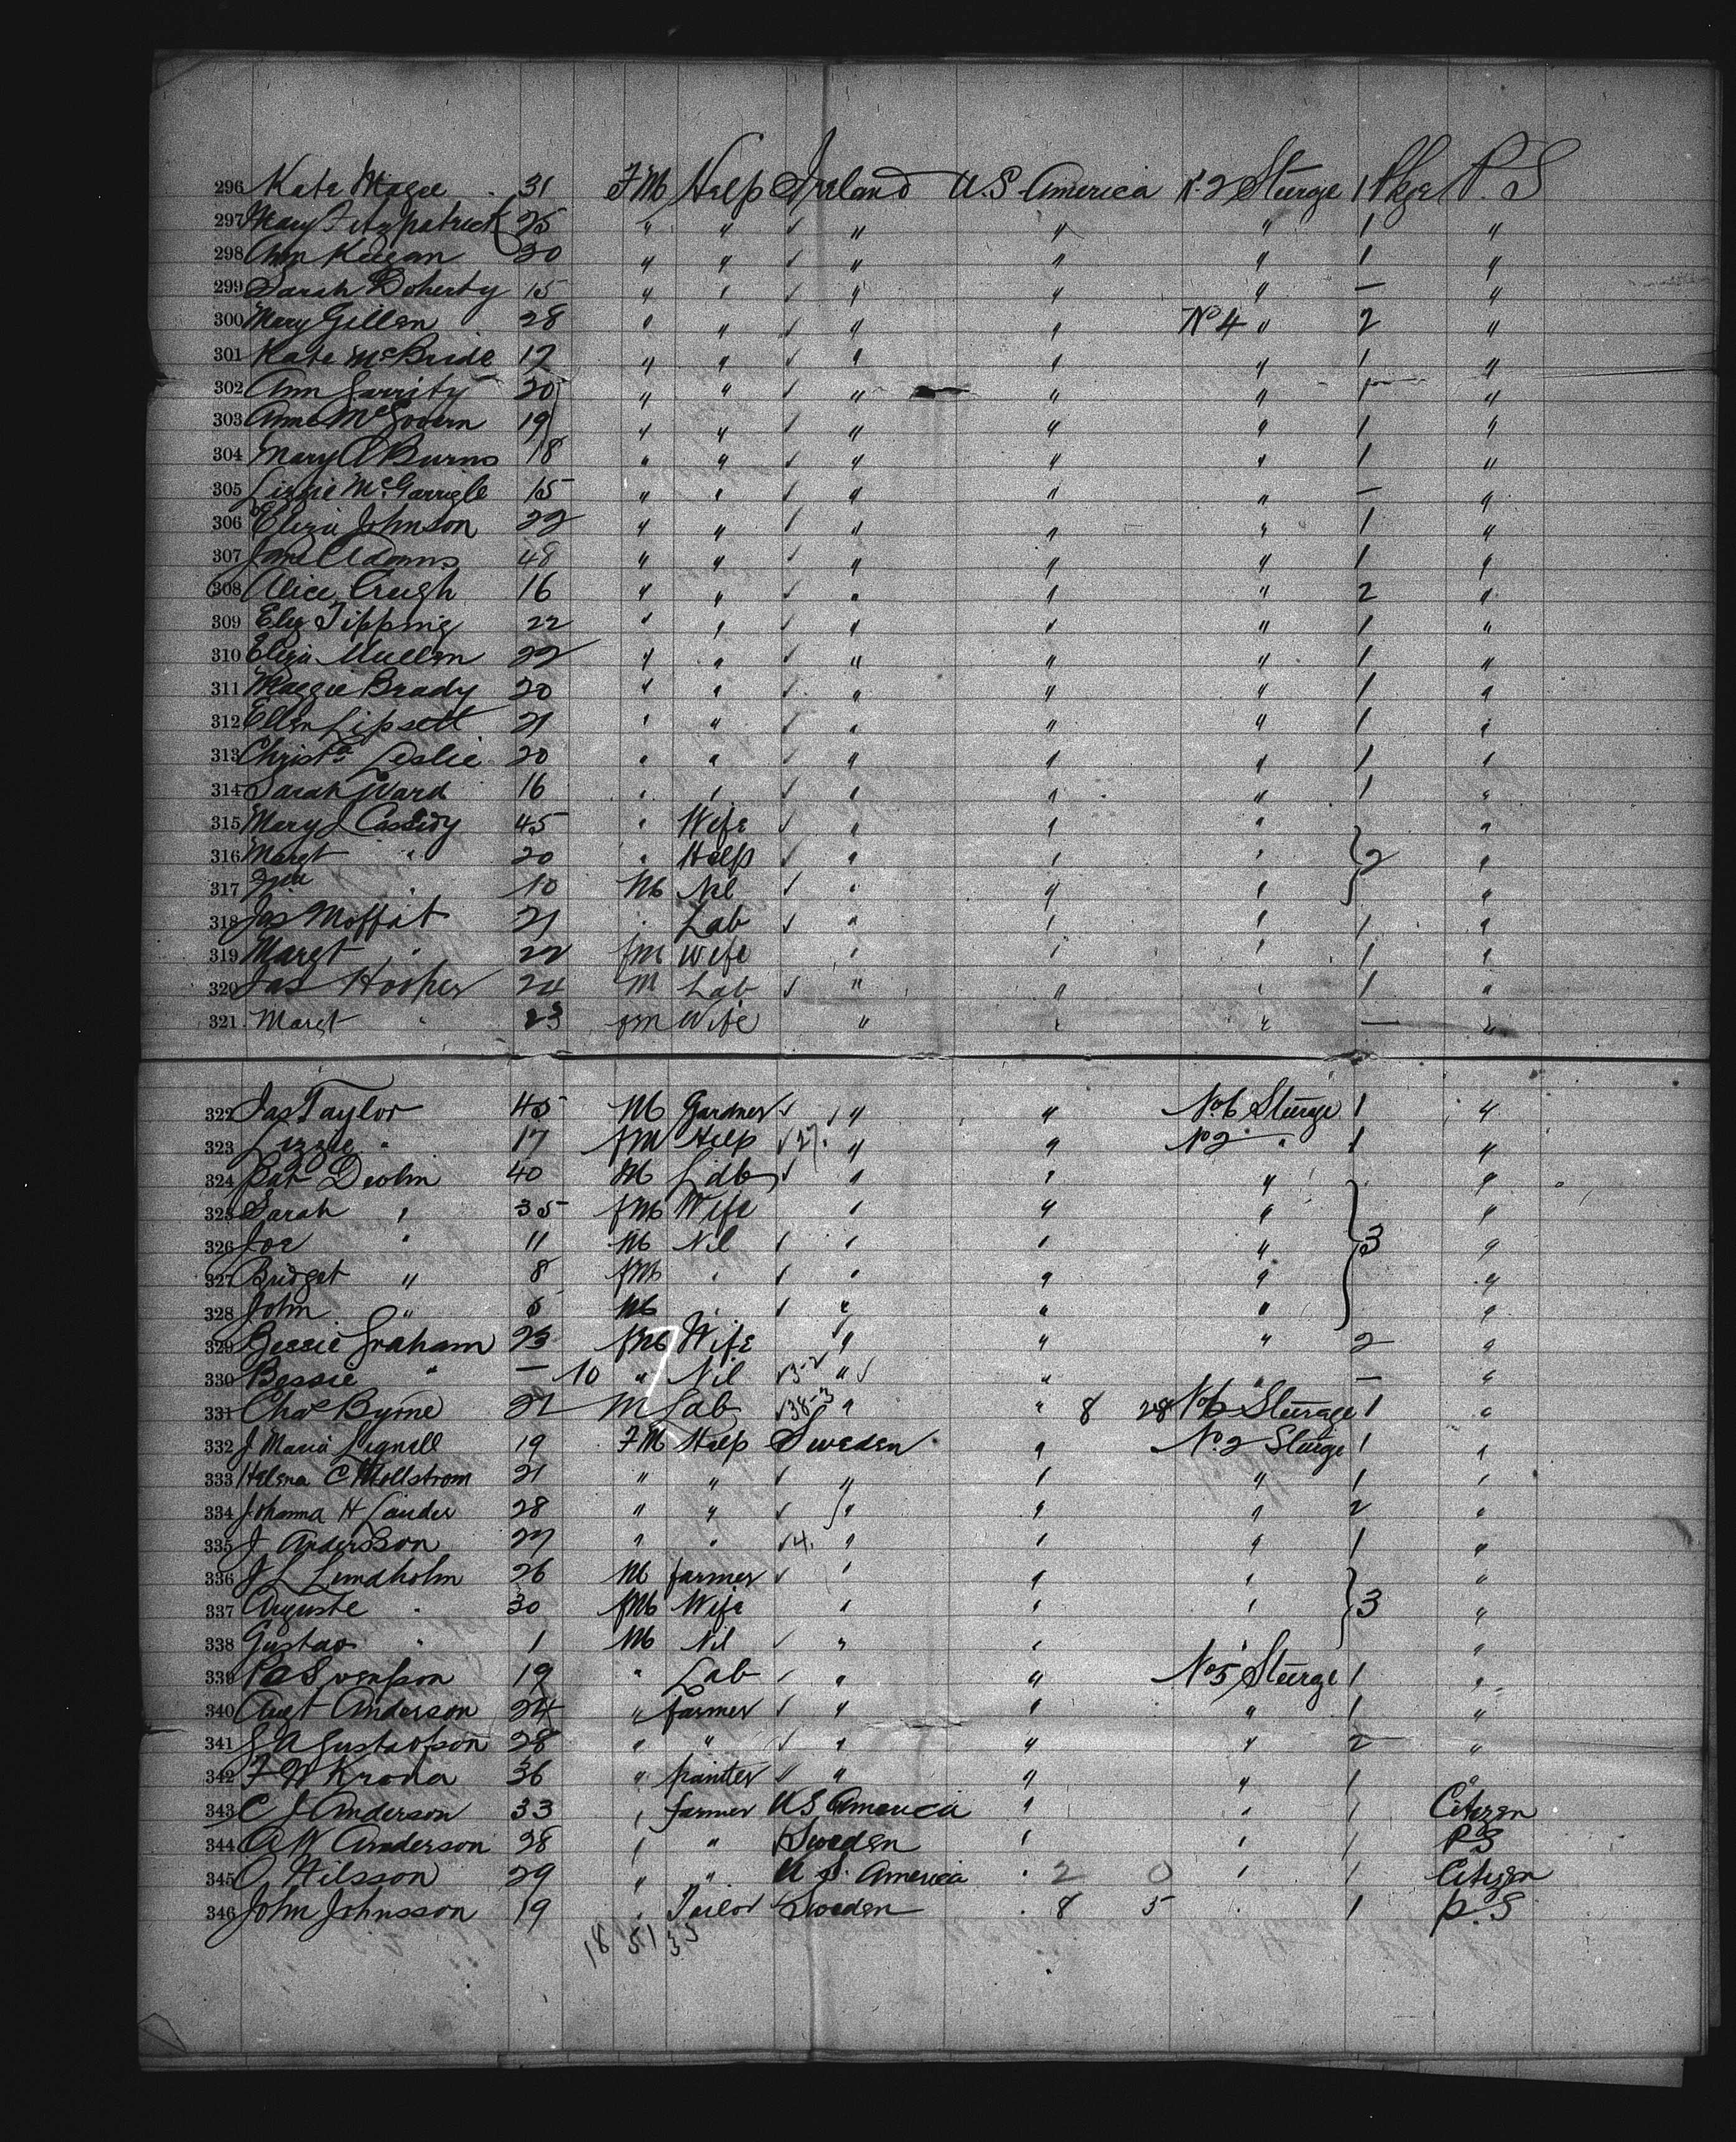 296 Kate Magee 31 FM Help Ireland U.S. America No. 2 Sturge 1 Pkge P.S
297 Mary Fitzpatrick 25 " " ✓ " " " 1 "
298 Ann Keegan 30 " " ✓ " " " 1 "
299 Sarah Doherty 15 " " ✓ " " " — "
300 Mary Gillen 28 " " ✓ " " No 4 " 2 "
301 Kate McBride 17 " " ✓ " " " 1 "
302 Ann Garrity 20 " " ✓ " " " 1 "
303 Anne McGovern 19 " " ✓ " " " 1 "
304 Mary A Burns 18 " " ✓ " " " 1 "
305 Lizzie McGarrigle 15 " " ✓ " " " — "
306 Eliza Johnson 22 " " ✓ " " " 1 "
307 Jane Adams 48 " " ✓ " " " 1 "
308 Alice Creigh 16 " " ✓ " " " 2 "
309 Eliz Tipping 22 " " ✓ " " " 1 "
310 Eliza Mullen 22 " " ✓ " " " 1 "
311 Maggie Brady 20 " " ✓ " " " 1 "
312 Ellen Lipsett 21 " " ✓ " " " 1 "
313 Christa Leslie 20 " " ✓ " " " 1 "
314 Sarah Ward 16 " " ✓ " " " 1 "
315 Mary J Cassidy 45 " Wife ✓ " " " "
316 Margt " 20 " Help ✓ " " " 2 "
317 " 10 M Nil ✓ " " " "
318 Jas Moffat 21 " Lab ✓ " " " 1 "
319 Margt " 22 fM Wife " " " 1 "
320 Jas Hooper 24 M Lab ✓ " " " 1 "
321 Margt " 23 fm Wife " " " — "
322 Jas Taylor 45 M Gardner ✓ " " No. 6 Sturge 1 "
323 Lizzie " 17 fM Help ✓ 27. " " No 2 " 1 "
324 Pat Devlin 40 M Lab ✓ " " " "
325 Sarah " 35 fM Wife " " " "
326 Joe " 11 M Nil ✓ " " " 3 "
327 Bridget " 8 fM " ✓ " " " "
328 John " 5 M " ✓ " " " "
329 Bessie Graham 23 fM Wife " " " 2 "
330 Bessie " — 10 " Nil ✓ 3-2 " ✓ " " — "
331 Chas Byrne 21 M Lab ✓ 38-3 " " 8 28 No 6 Sturage 1 "
332 J Maria Lignell 19 FM Help Sweden " No. 2 Sturge 1 "
333 Helena C Mollstrom 21 " " ✓ " " " 1 "
334 Johanna H Lander 28 " " ✓ " " " 2 "
335 J Andersson 27 " " ✓ 4. " " " 1 "
336 J L Lundholm 26 M farmer ✓ " " " "
337 Auguste " 30 fM Wife " " " 3 "
338 Gustav " 1 M Nil ✓ " " " "
339 P A Svensson 19 " Lab ✓ " " No 5 Sturge 1 "
340 Augt Anderson 24 " farmer ✓ " " " 1 "
341 G A Gustafson 28 " " ✓ " " " 2 "
342 F W Krona 36 " painter " " " " 1 "
343 C J Anderson 33 " farmer U S America " " 1 Citizen
344 A W Anderson 28 " " Sweden " " 1 P S
345 O Nilsson 29 " " U S. America " 2 0 " 1 Citizen
346 John Johnsson 19 " Tailor Sweden " 8 5 " 1 P.S
18 51 33